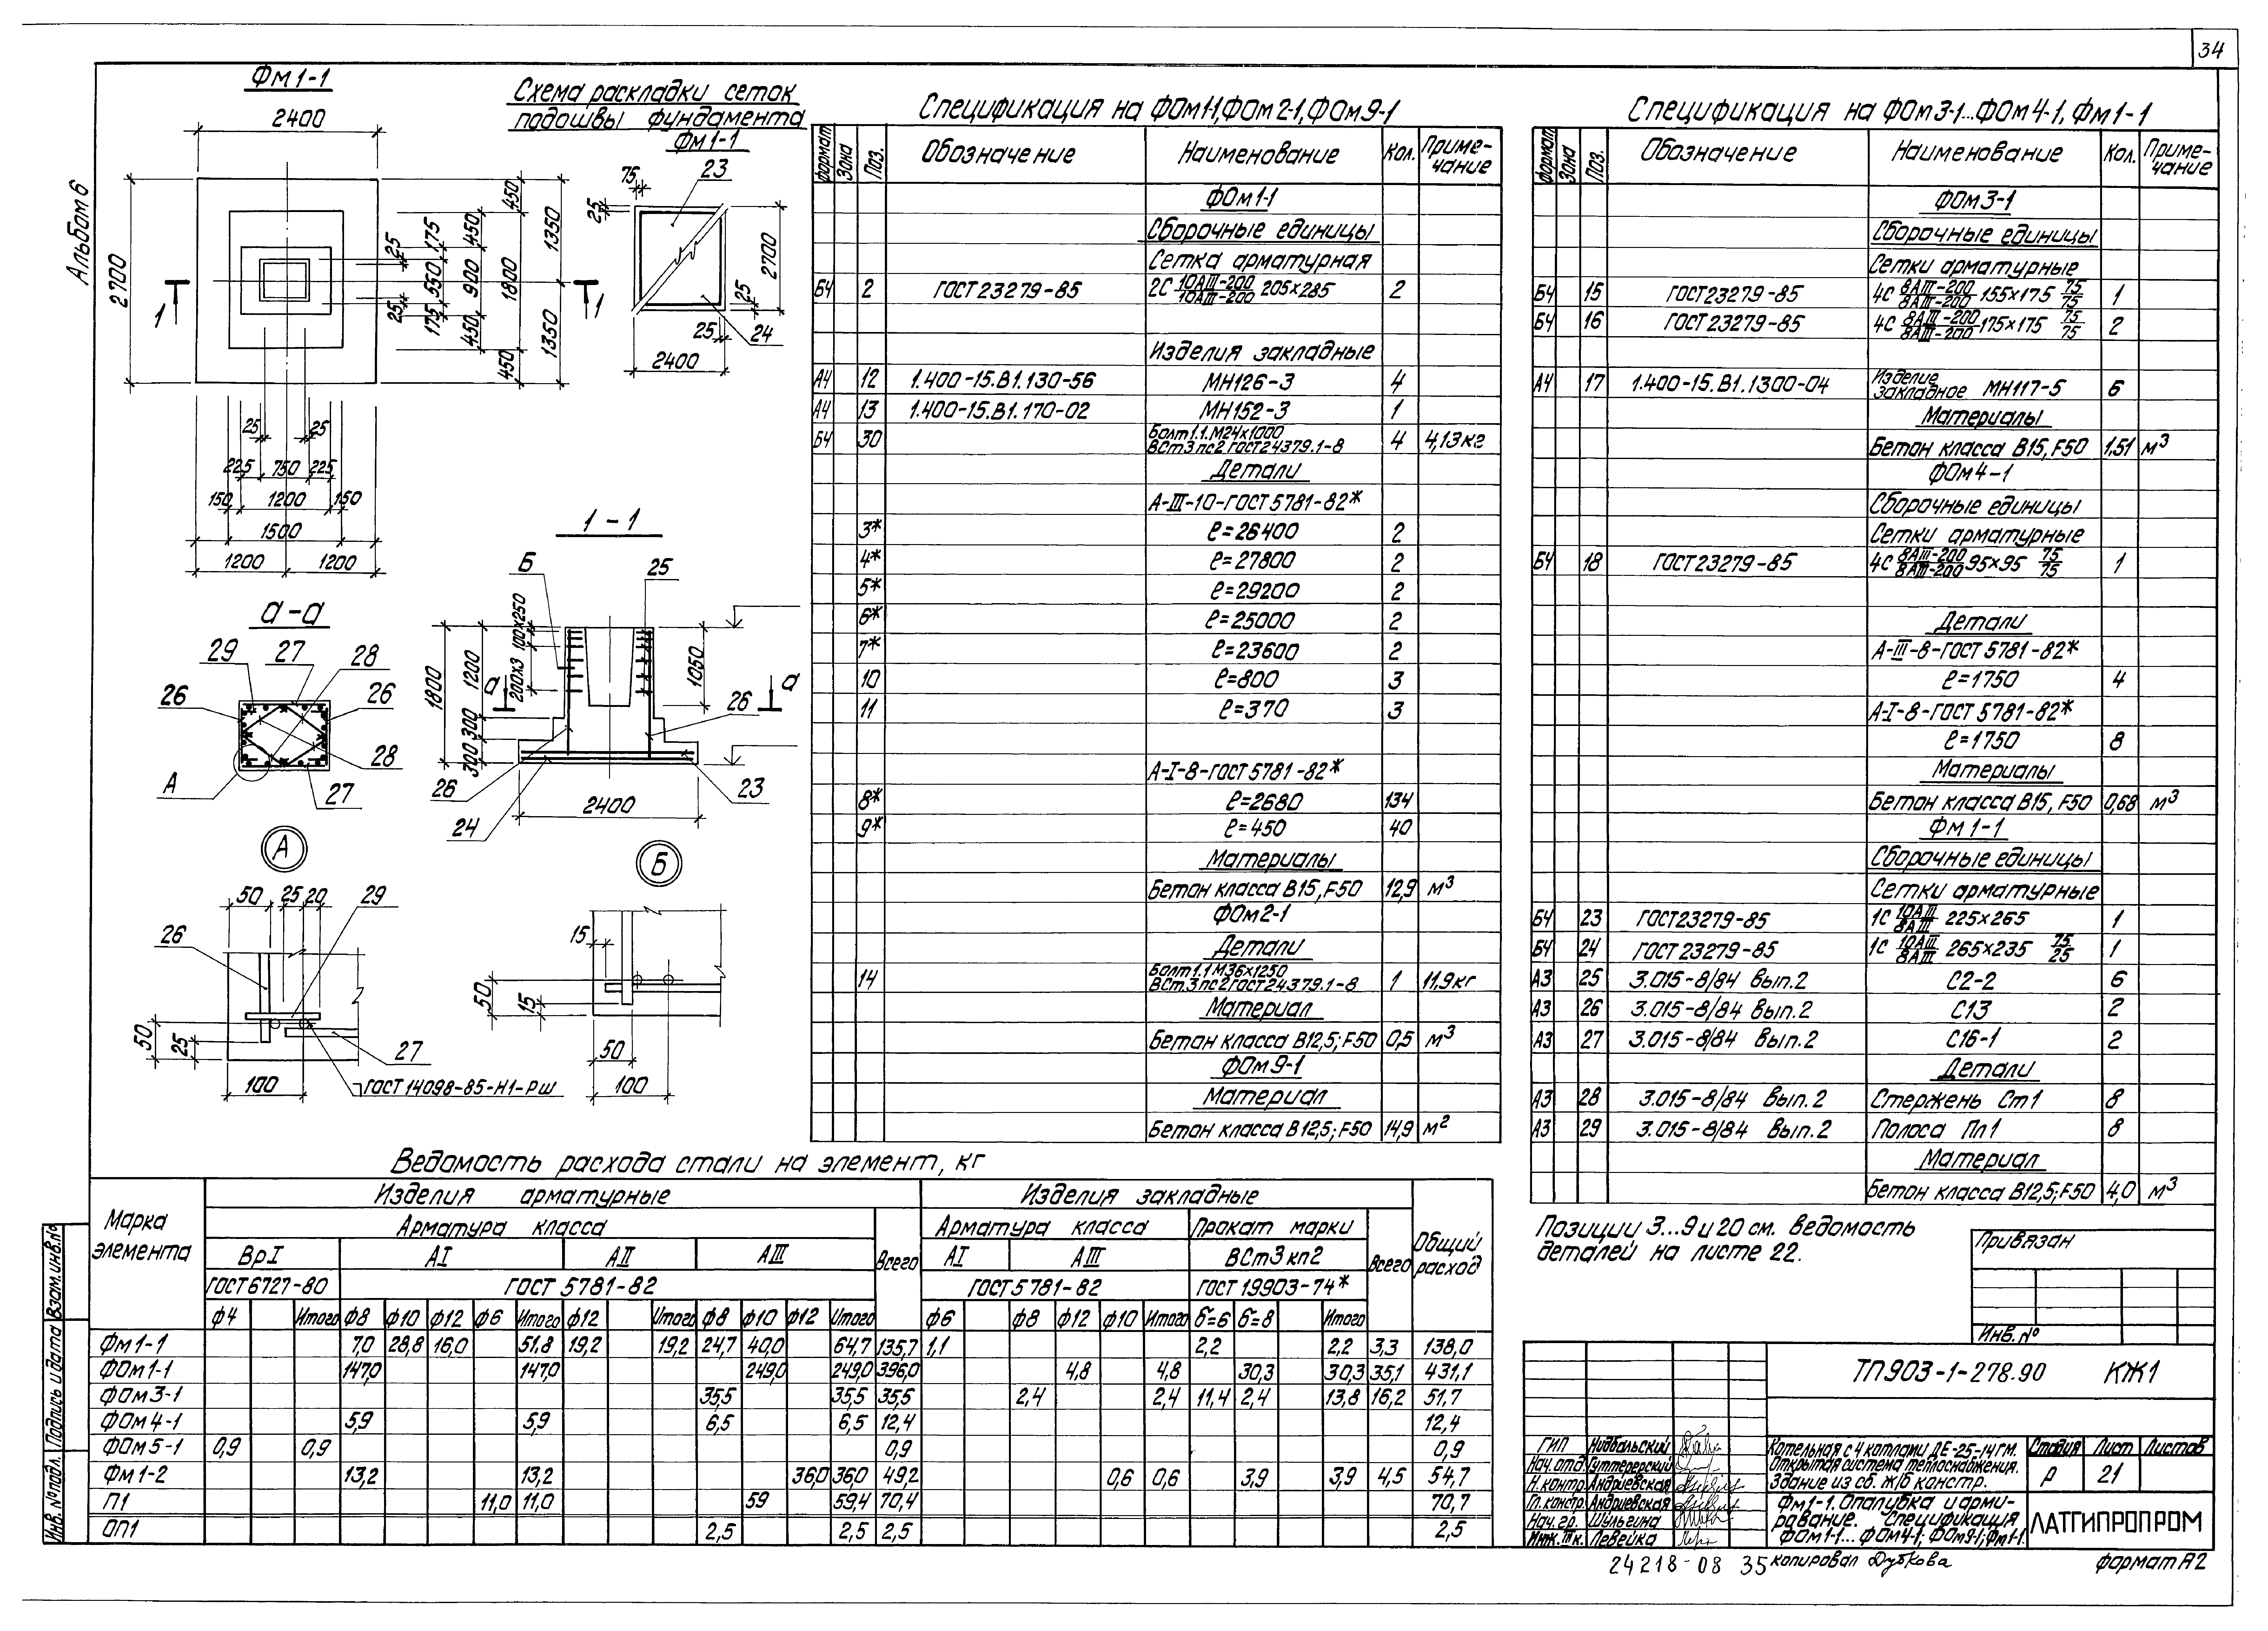 34
Альбом 6
Фм1-1
2400
2700
450
1350
1350
450
450
175
25
550
900
1800
25
175
450
1
1
25
25
225
750
225
150
1200
150
1500
1200
1200
Схема раскладки сеток
подошвы фундамента
Фм1-1
75
23
25
2700
25
25
24
2400
1-1
Б
25
100х250
200х3
1200
1800
300
300
1050
а
а
26
26
24
23
2400
а-а
29
27
28
26
26
28
27
А
А
50
25
20
29
26
50
25
27
100
ГОСТ 14098-85-Н1-Рш
Б
15
50
15
50
100
Спецификация на ФОм1-1,ФОм2-1,ФОм9-1
Формат Зона Поз. Обозначение Наименование Кол. Примечание
ФОм1-1
Сборочные единицы
Сетка арматурная
БЧ 2 ГОСТ 23279-85 2С 10АIII-200/10АIII-200 205х285 2
Изделия закладные
А4 12 1.400-15.В1.130-56 МН126-3 4
А4 13 1.400-15.В1.170-02 МН152-3 1
БЧ 30 Болт 1.1.М24х1000 ВСт3пс2 ГОСТ 24379.1-8 4 4,13кг
Детали
А-III-10-ГОСТ 5781-82*
3* ℓ=26400 2
4* ℓ=27800 2
5* ℓ=29200 2
6* ℓ=25000 2
7* ℓ=23600 2
10 ℓ=800 3
11 ℓ=370 3
А-I-8-ГОСТ 5781-82*
8* ℓ=2680 134
9* ℓ=450 40
Материалы
Бетон класса В15, F50 12,9 м³
ФОм2-1
Детали
14 Болт 1.1 М36х1250 ВСт3пс2 ГОСТ 24379.1-8 1 11,9кг
Материал
Бетон класса В12,5; F50 0,5 м³
ФОм9-1
Материал
Бетон класса В12,5; F50 14,9 м²
Спецификация на ФОм3-1...ФОм4-1, Фм1-1
Формат Зона Поз. Обозначение Наименование Кол. Примечание
ФОм3-1
Сборочные единицы
Сетки арматурные
БЧ 15 ГОСТ 23279-85 4С 8АIII-200/8АIII-200 155х175 75/75 1
БЧ 16 ГОСТ 23279-85 4С 8АIII-200/8АIII-200 175х175 75/75 2
А4 17 1.400-15.В1.1300-04 Изделие закладное МН117-5 6
Материалы
Бетон класса В15, F50 1,51 м³
ФОм4-1
Сборочные единицы
Сетки арматурные
БЧ 18 ГОСТ 23279-85 4С 8АIII-200/8АIII-200 95х95 75/75 1
Детали
А-III-8-ГОСТ 5781-82*
ℓ=1750 4
А-I-8-ГОСТ 5781-82*
ℓ=1750 8
Материалы
Бетон класса В15, F50 0,68 м³
Фм1-1
Сборочные единицы
Сетки арматурные
БЧ 23 ГОСТ 23279-85 1С 10АIII/8АIII 225х265 1
БЧ 24 ГОСТ 23279-85 1С 10АIII/8АIII 265х235 75/25 1
А3 25 3.015-8/84 Вып.2 С2-2 6
А3 26 3.015-8/84 Вып.2 С13 2
А3 27 3.015-8/84 Вып.2 С16-1 2
Детали
А3 28 3.015-8/84 Вып.2 Стержень Ст1 8
А3 29 3.015-8/84 Вып.2 Полоса Пл1 8
Материал
Бетон класса В12,5; F50 4,0 м³
Позиции 3...9 и 20 см. ведомость
деталей на листе 22.
Ведомость расхода стали на элемент, кг
Марка элемента Изделия арматурные Изделия закладные Общий расход
Арматура класса Всего Арматура класса Прокат марки Всего
ВрI АI АII АIII АI АIII ВСт3кп2
ГОСТ 6727-80 ГОСТ 5781-82 ГОСТ 5781-82 ГОСТ 19903-74*
ф4 Итого ф8 ф10 ф12 ф6 Итого ф12 Итого ф8 ф10 ф12 Итого ф6 ф8 ф12 ф10 Итого б=6 б=8 Итого
Фм1-1 7,0 28,8 16,0 51,8 19,2 19,2 24,7 40,0 64,7 135,7 1,1 2,2 2,2 3,3 138,0
ФОм1-1 147,0 147,0 249,0 249,0 396,0 4,8 4,8 30,3 30,3 35,1 431,1
ФОм3-1 35,5 35,5 35,5 2,4 2,4 11,4 2,4 13,8 16,2 51,7
ФОм4-1 5,9 5,9 6,5 6,5 12,4 12,4
ФОм5-1 0,9 0,9 0,9 0,9
Фм1-2 13,2 13,2 36,0 36,0 49,2 0,6 0,6 3,9 3,9 4,5 54,7
П1 11,0 11,0 59 59,4 70,4 70,7
ОП1 2,5 2,5 2,5 2,5
Инв.№ подл. Подпись и дата Взам.инв.№
Привязан
Инв.№
ТП 903-1-278.90 КЖ1
ГИП Нидбальский
Нач.отд.
Н.контр. Андриевская
Гл.констр. Андриевская
Нач.гр. Шульгина
Инж.IIк. Левейка
Котельная с 4 котлами ДЕ-25-14ГМ.
Открытая система теплоснабжения.
Здание из сб. ж/б констр.
Стадия Лист Листов
Р 21
Фм1-1. Опалубка и армирование. Спецификация
ФОм1-1... ФОм4-1; ФОм9-1; Фм1-1.
ЛАТГИПРОПРОМ
24218-08 35
копировал Дубкова
формат А2